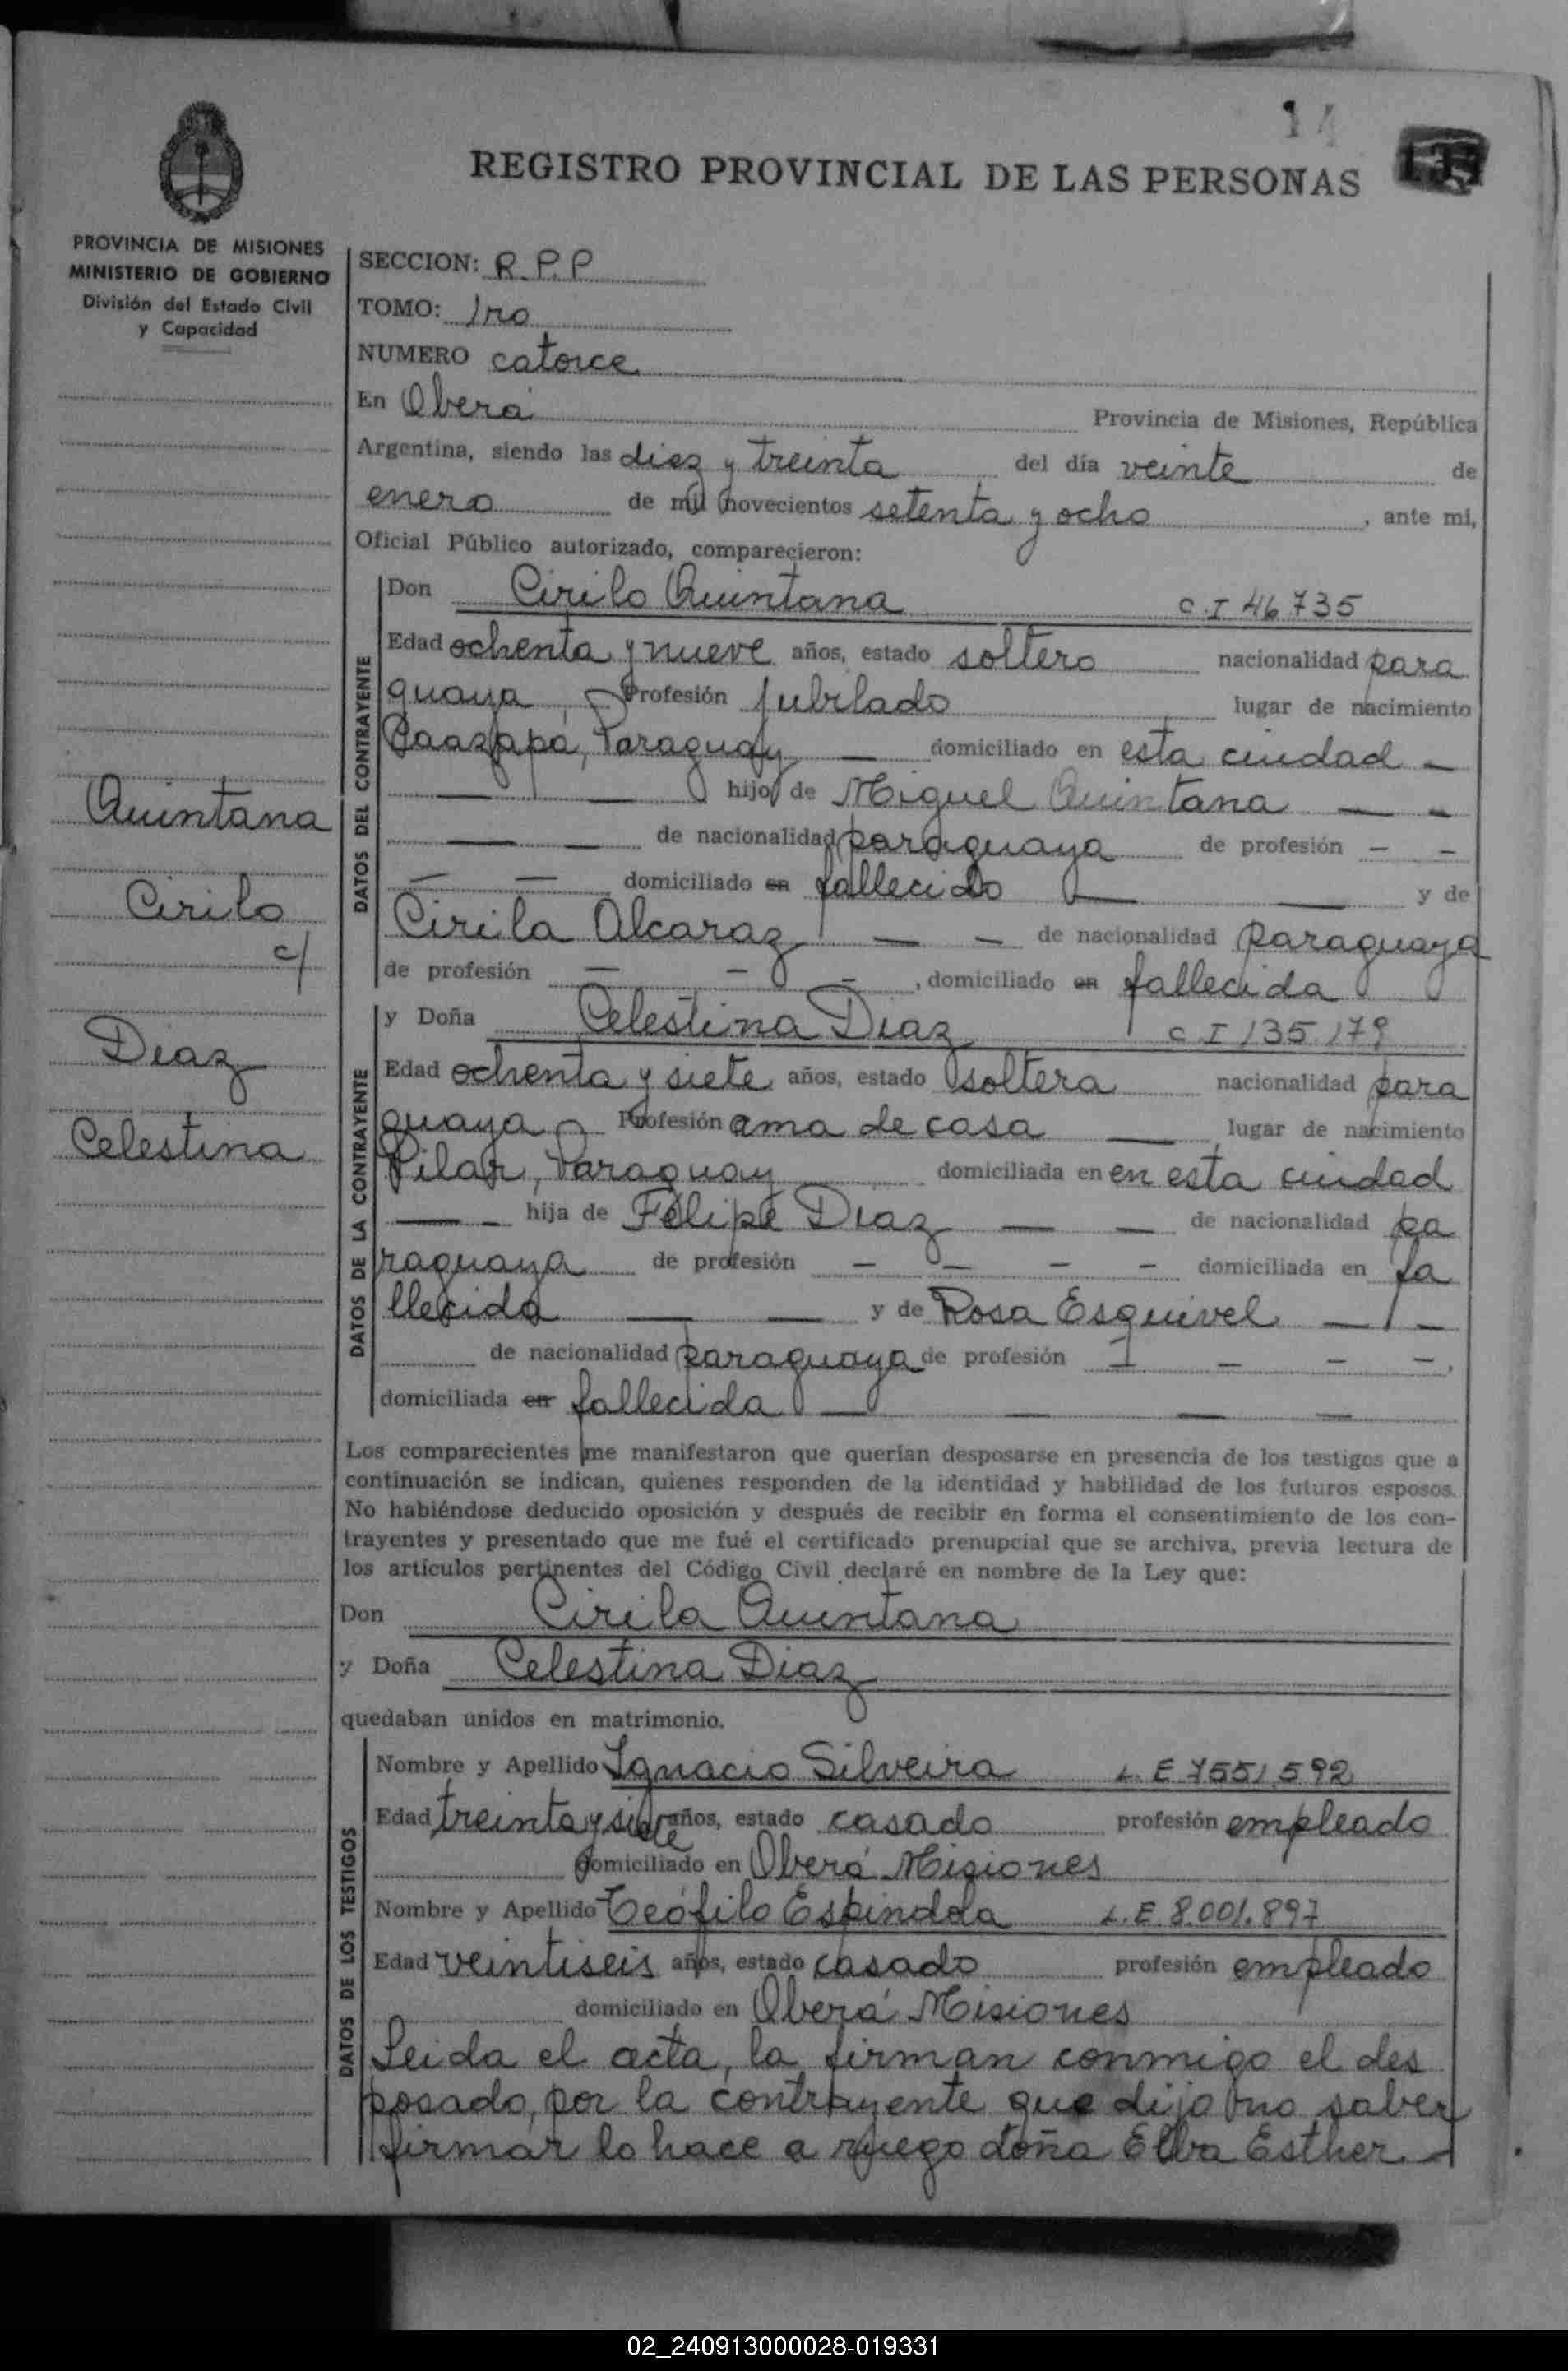 14
REGISTRO PROVINCIAL DE LAS PERSONAS
PROVINCIA DE MISIONES
MINISTERIO DE GOBIERNO
División del Estado Civil
y Capacidad
SECCION: R.P.P
TOMO: 1ro
NUMERO catorce
En Oberá Provincia de Misiones, República
Argentina, siendo las diez y treinta del día veinte de
enero de mil novecientos setenta y ocho, ante mi,
Oficial Público autorizado, comparecieron:
DATOS DEL CONTRAYENTE
Don Cirilo Quintana C.I 46735
Edad ochenta y nueve años, estado soltero nacionalidad para
guaya, Profesión Jubilado lugar de nacimiento
Caazapá, Paraguay — domiciliado en esta ciudad —
— — hijo de Miguel Quintana — —
— — de nacionalidad paraguaya de profesión — —
— — domiciliado en fallecido — — y de
Cirila Alcaraz — — de nacionalidad paraguaya
de profesión — — —, domiciliado en fallecida
DATOS DE LA CONTRAYENTE
y Doña Celestina Diaz C.I 135.179
Edad ochenta y siete años, estado soltera nacionalidad para
guaya — Profesión ama de casa — lugar de nacimiento
Pilar, Paraguay domiciliada en en esta ciudad
— — hija de Felipe Diaz — — de nacionalidad pa
raguaya de profesión — — — — domiciliada en fa
llecido — — y de Rosa Esquivel — —
de nacionalidad paraguaya de profesión — — — —,
domiciliada en fallecida — — — —
Los comparecientes me manifestaron que querían desposarse en presencia de los testigos que a
continuación se indican, quienes responden de la identidad y habilidad de los futuros esposos.
No habiéndose deducido oposición y después de recibir en forma el consentimiento de los con-
trayentes y presentado que me fué el certificado prenupcial que se archiva, previa lectura de
los artículos pertinentes del Código Civil declaré en nombre de la Ley que:
Don Cirila Quintana
y Doña Celestina Diaz
quedaban unidos en matrimonio.
DATOS DE LOS TESTIGOS
Nombre y Apellido Ignacio Silveira L.E 7551.592
Edad treinta y siete años, estado casado profesión empleado
domiciliado en Oberá Misiones
Nombre y Apellido Teófilo Espindola L.E. 8.001.897
Edad veintiseis años, estado casado profesión empleado
domiciliado en Oberá Misiones
Leida el acta, la firman conmigo el des
posado, por la contrayente que dijo no saber
firmar lo hace a ruego doña Elba Esther
Quintana
Cirilo
c/
Diaz
Celestina
02_240913000028-019331